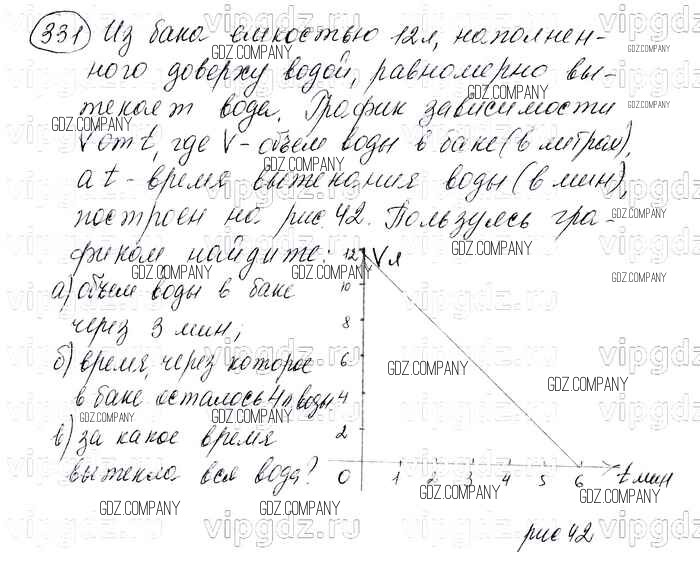 331 Из бака емкостью 12л, наполнен-
ного доверху водой, равномерно вы-
текает вода. График зависимости
V от t, где V - объем воды в баке (в литрах),
а t - время вытекания воды (в мин),
построен на рис. 42. Пользуясь гра-
фиком найдите:
а) объем воды в баке
через 3 мин;
б) время, через которое
в баке осталось 4 л воды
в) за какое время
вытекла вся вода?
V л
12
10
8
6
4
2
0 1 2 3 4 5 6 t мин
рис 42
GDZ.COMPANY
vipgdz.ru